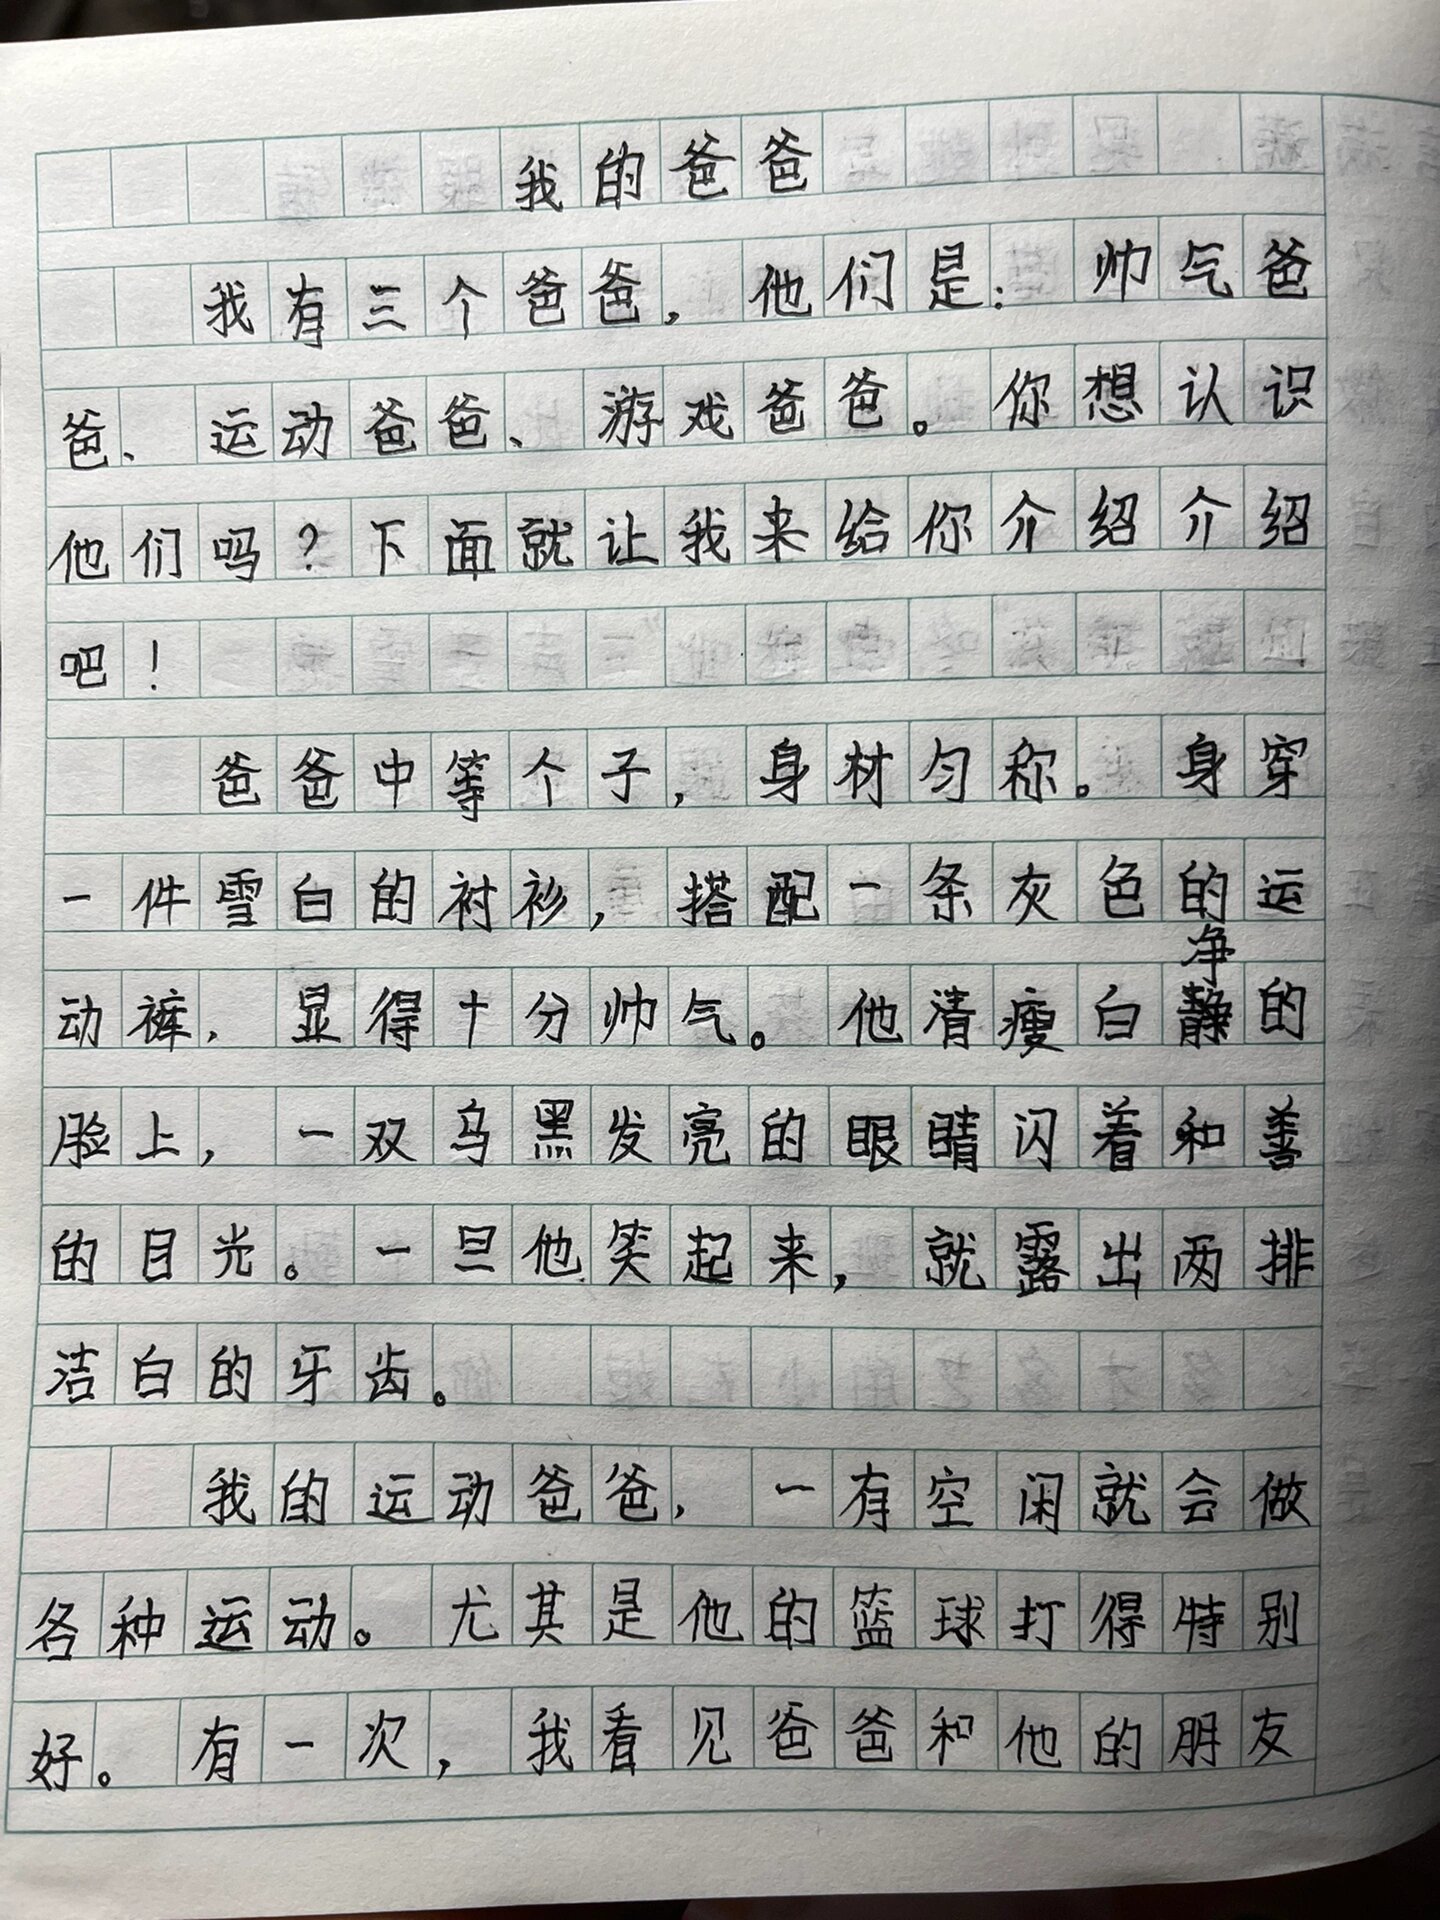 我的爸爸
我有三个爸爸，他们是：帅气爸
爸、运动爸爸、游戏爸爸。你想认识
他们吗？下面就让我来给你介绍介绍
吧！
爸爸中等个子，身材匀称。身穿
一件雪白的衬衫，搭配一条灰色的运
净
动裤，显得十分帅气。他清瘦白静的
脸上，一双乌黑发亮的眼睛闪着和善
的目光。一旦他笑起来，就露出两排
洁白的牙齿。
我的运动爸爸，一有空闲就会做
各种运动。尤其是他的篮球打得特别
好。有一次，我看见爸爸和他的朋友